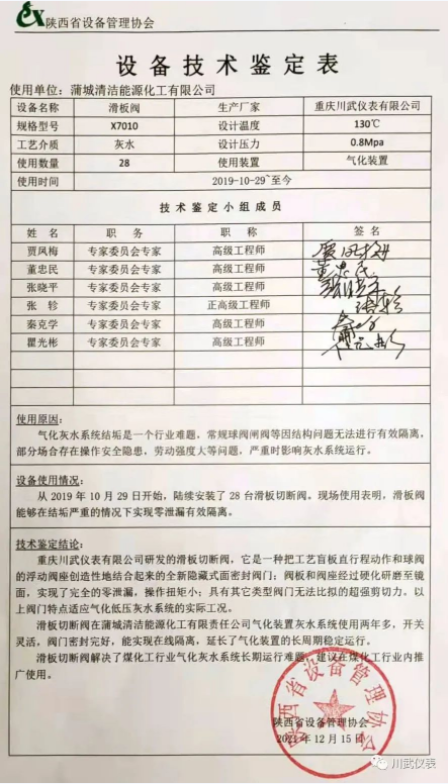 陕西省设备管理协会
设备技术鉴定表
使用单位：蒲城清洁能源化工有限公司
设备名称 滑板阀 生产厂家 重庆川武仪表有限公司
规格型号 X7010 设计温度 130℃
工艺介质 灰水 设计压力 0.8Mpa
使用数量 28 使用装置 气化装置
使用时间 2019-10-29~至今
技术鉴定小组成员
姓名 职务 职称 签名
贾凤梅 专家委员会专家 高级工程师 贾凤梅
董忠民 专家委员会专家 高级工程师 董忠民
张晓平 专家委员会专家 高级工程师
张轸 专家委员会专家 正高级工程师
秦克学 专家委员会专家 高级工程师
瞿光彬 专家委员会专家 高级工程师
使用原因：
气化灰水系统结垢是一个行业难题，常规球阀闸阀等因结构问题无法进行有效隔离，
部分场合存在操作安全隐患，劳动强度大等问题，严重时影响灰水系统运行。
设备使用情况：
从 2019 年 10 月 29 日开始，陆续安装了 28 台滑板切断阀。现场使用表明，滑板阀
能够在结垢严重的情况下实现零泄漏有效隔离。
技术鉴定结论：
重庆川武仪表有限公司研发的滑板切断阀，它是一种把工艺盲板直行程动作和球阀
的浮动阀座创造性地结合起来的全新隐藏式面密封阀门；阀板和阀座经过硬化研磨至镜
面，实现了完全的零泄漏，操作扭矩小；具有其它类型阀门无法比拟的超强剪切力。以
上阀门特点适应气化低压灰水系统的实际工况。
滑板切断阀在蒲城清洁能源化工有限责任公司气化装置灰水系统使用两年多，开关
灵活，阀门密封完好，能实现在线隔离，延长了气化装置的长周期稳定运行。
滑板切断阀解决了煤化工行业气化灰水系统长期运行难题，建议在煤化工行业内推
广使用。
陕西省设备管理协会
陕西省设备管理协会
2021 年 12 月 15 日
川武仪表